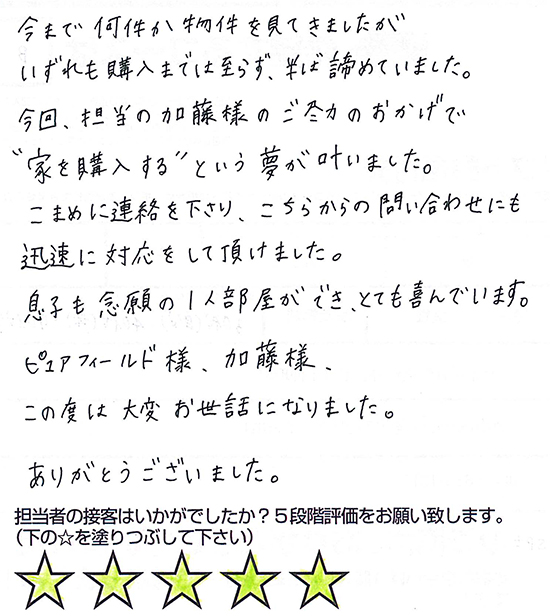 今まで何件か物件を見てきましたが
いずれも購入までは至らず、半ば諦めていました。
今回、担当の加藤様のご尽力のおかげで
"家を購入する"という夢が叶いました。
こまめに連絡を下さり、こちらからの問い合わせにも
迅速に対応をして頂けました。
息子も念願の1人部屋ができ、とても喜んでいます。
ピュアフィールド様、加藤様、
この度は大変お世話になりました。
ありがとうございました。
担当者の接客はいかがでしたか？５段階評価をお願い致します。
（下の☆を塗りつぶして下さい）